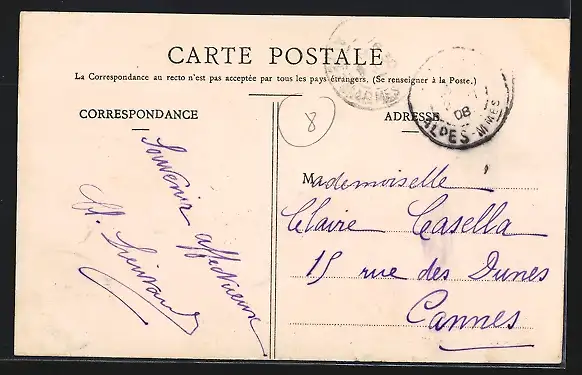 CARTE POSTALE
La Correspondance au recto n'est pas acceptée par tous les pays étrangers. (Se renseigner à la Poste.)
CORRESPONDANCE
ADRESSE
8
08
ALPES-MMES
Souvenir affectueux
Mademoiselle
Claire Casella
15 rue des Dunes
Cannes